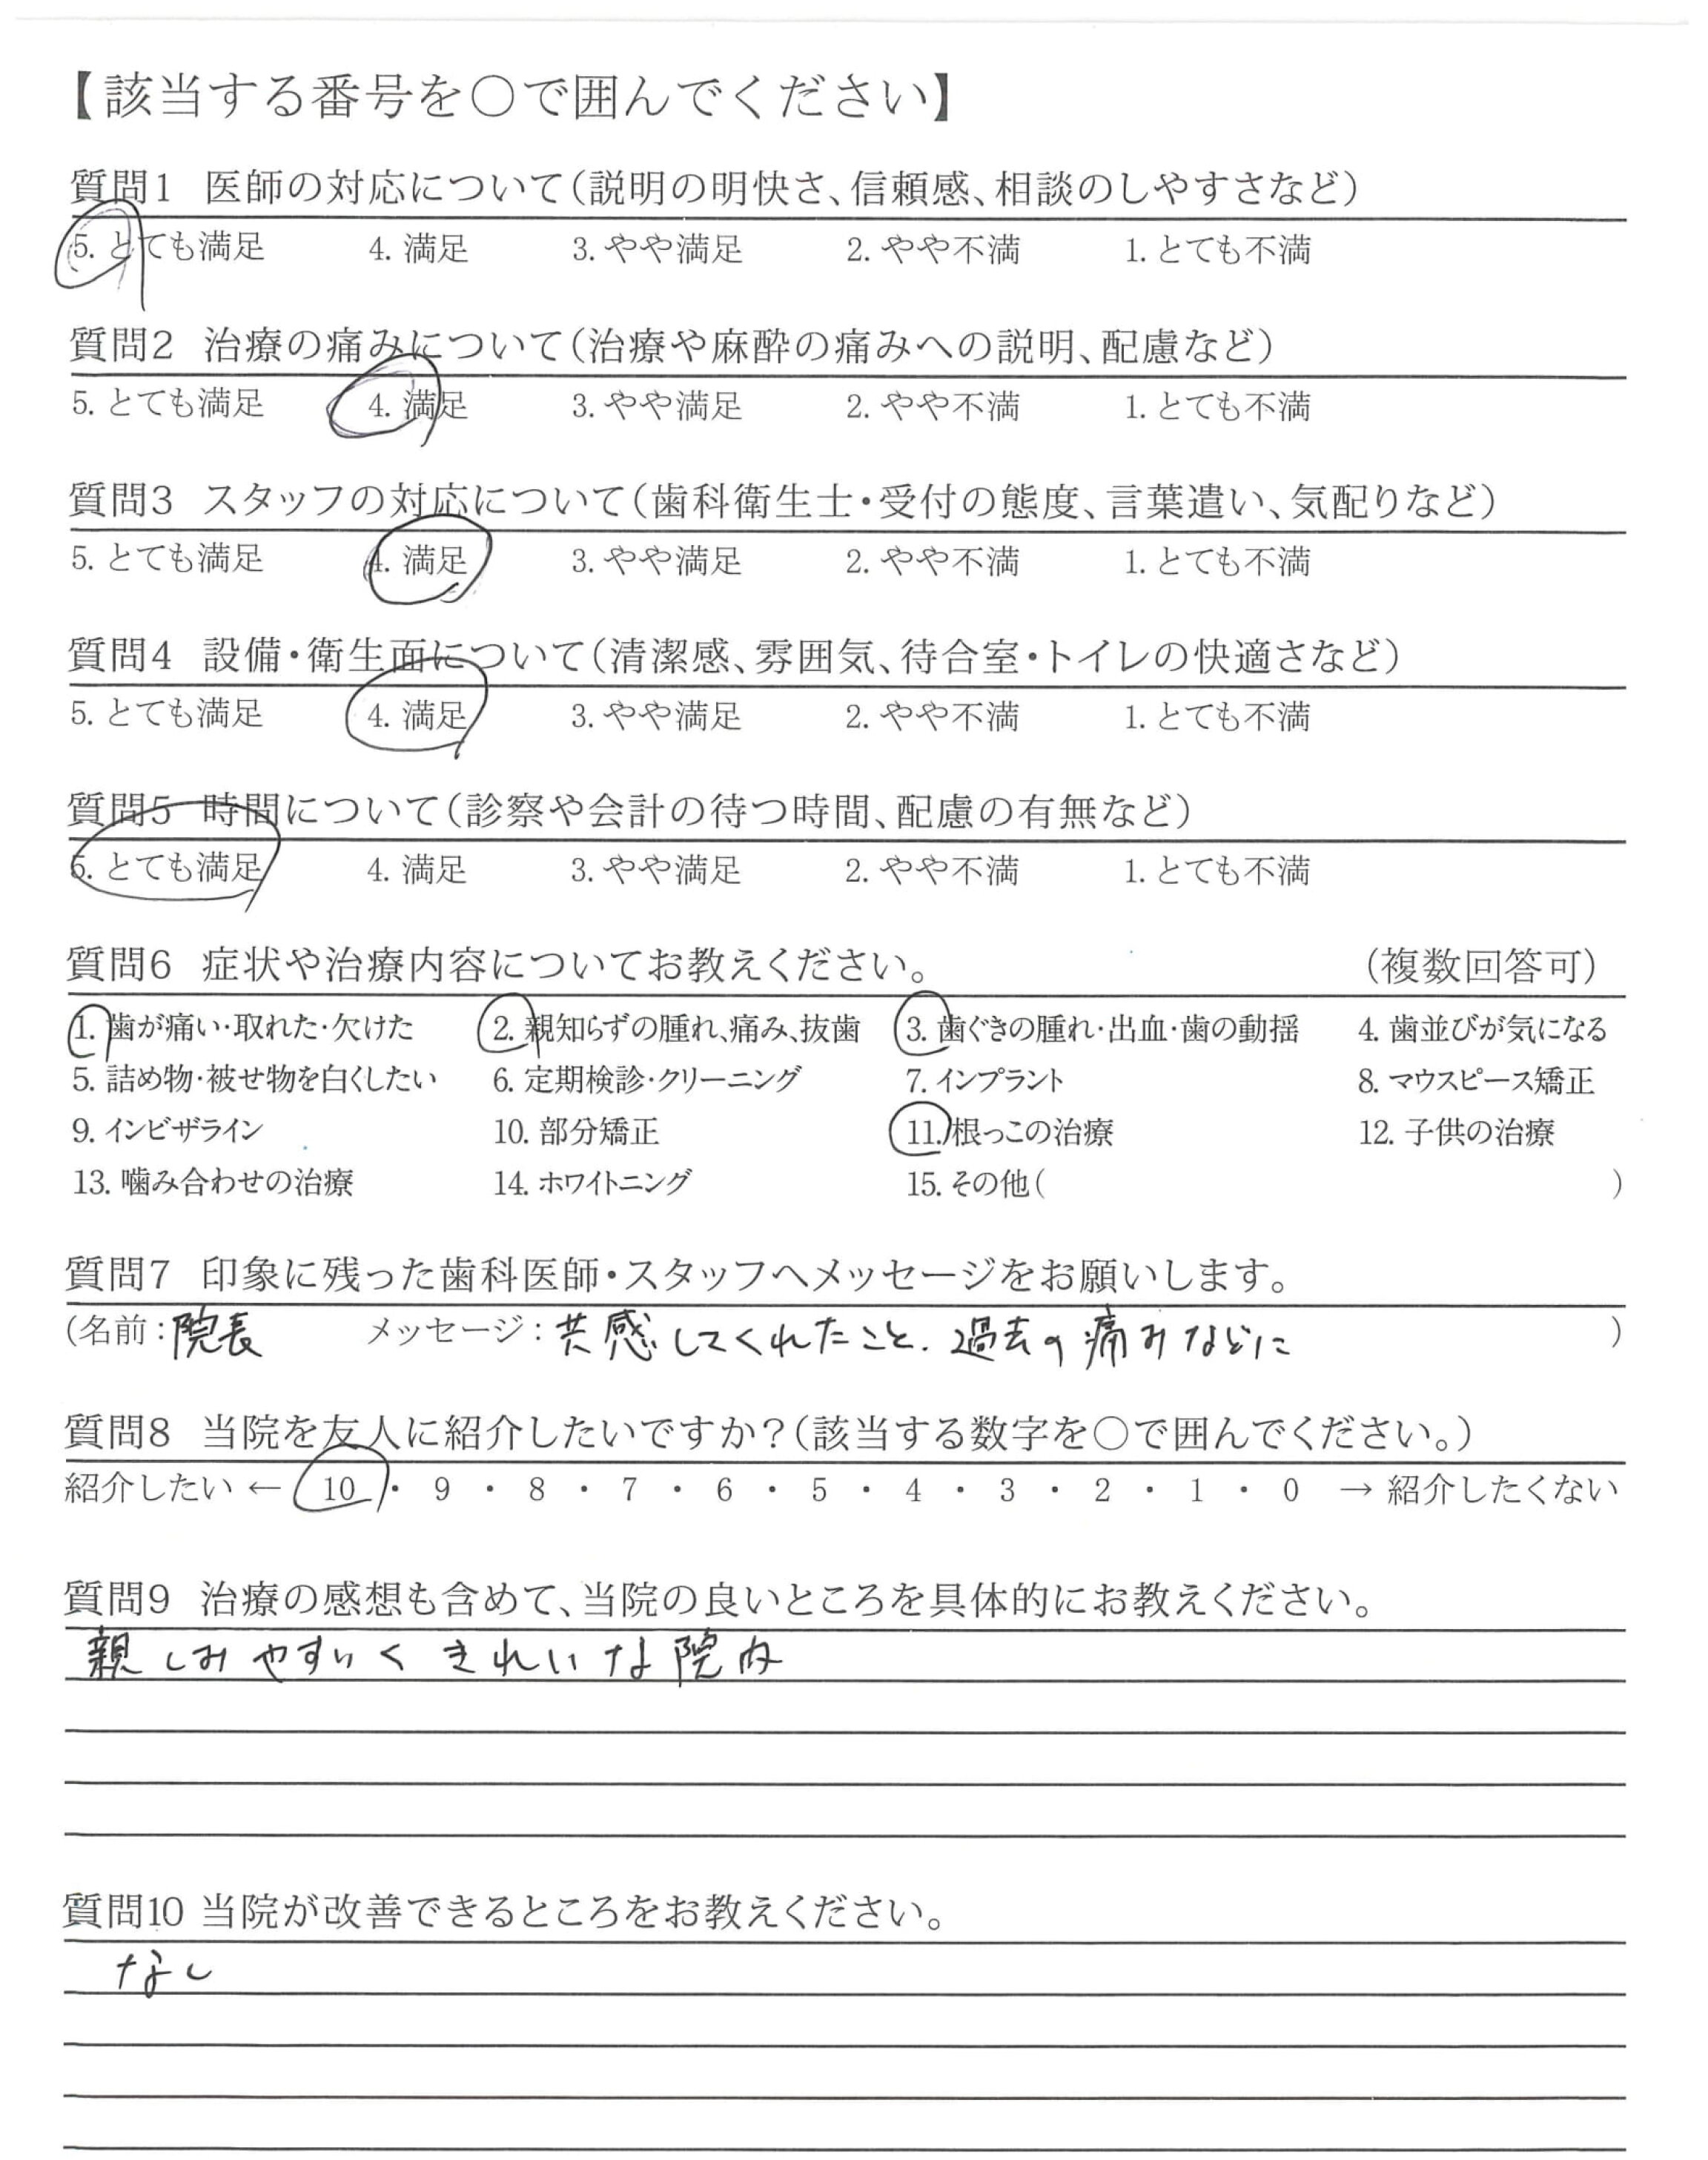 【該当する番号を○で囲んでください】
質問1 医師の対応について(説明の明快さ、信頼感、相談のしやすさなど)
5. とても満足 4. 満足 3. やや満足 2. やや不満 1. とても不満
質問2 治療の痛みについて(治療や麻酔の痛みへの説明、配慮など)
5. とても満足 4. 満足 3. やや満足 2. やや不満 1. とても不満
質問3 スタッフの対応について(歯科衛生士・受付の態度、言葉遣い、気配りなど)
5. とても満足 4. 満足 3. やや満足 2. やや不満 1. とても不満
質問4 設備・衛生面について(清潔感、雰囲気、待合室・トイレの快適さなど)
5. とても満足 4. 満足 3. やや満足 2. やや不満 1. とても不満
質問5 時間について(診察や会計の待つ時間、配慮の有無など)
5. とても満足 4. 満足 3. やや満足 2. やや不満 1. とても不満
質問6 症状や治療内容についてお教えください。 (複数回答可)
1. 歯が痛い・取れた・欠けた 2. 親知らずの腫れ、痛み、抜歯 3. 歯ぐきの腫れ・出血・歯の動揺 4. 歯並びが気になる
5. 詰め物・被せ物を白くしたい 6. 定期検診・クリーニング 7. インプラント 8. マウスピース矯正
9. インビザライン 10. 部分矯正 11. 根っこの治療 12. 子供の治療
13. 噛み合わせの治療 14. ホワイトニング 15. その他( )
質問7 印象に残った歯科医師・スタッフへメッセージをお願いします。
(名前:院長 メッセージ:共感してくれたこと.過去の痛みなどに )
質問8 当院を友人に紹介したいですか?(該当する数字を○で囲んでください。)
紹介したい ← 10 ・ 9 ・ 8 ・ 7 ・ 6 ・ 5 ・ 4 ・ 3 ・ 2 ・ 1 ・ 0 → 紹介したくない
質問9 治療の感想も含めて、当院の良いところを具体的にお教えください。
親しみやすいく きれいな院内
質問10 当院が改善できるところをお教えください。
なし